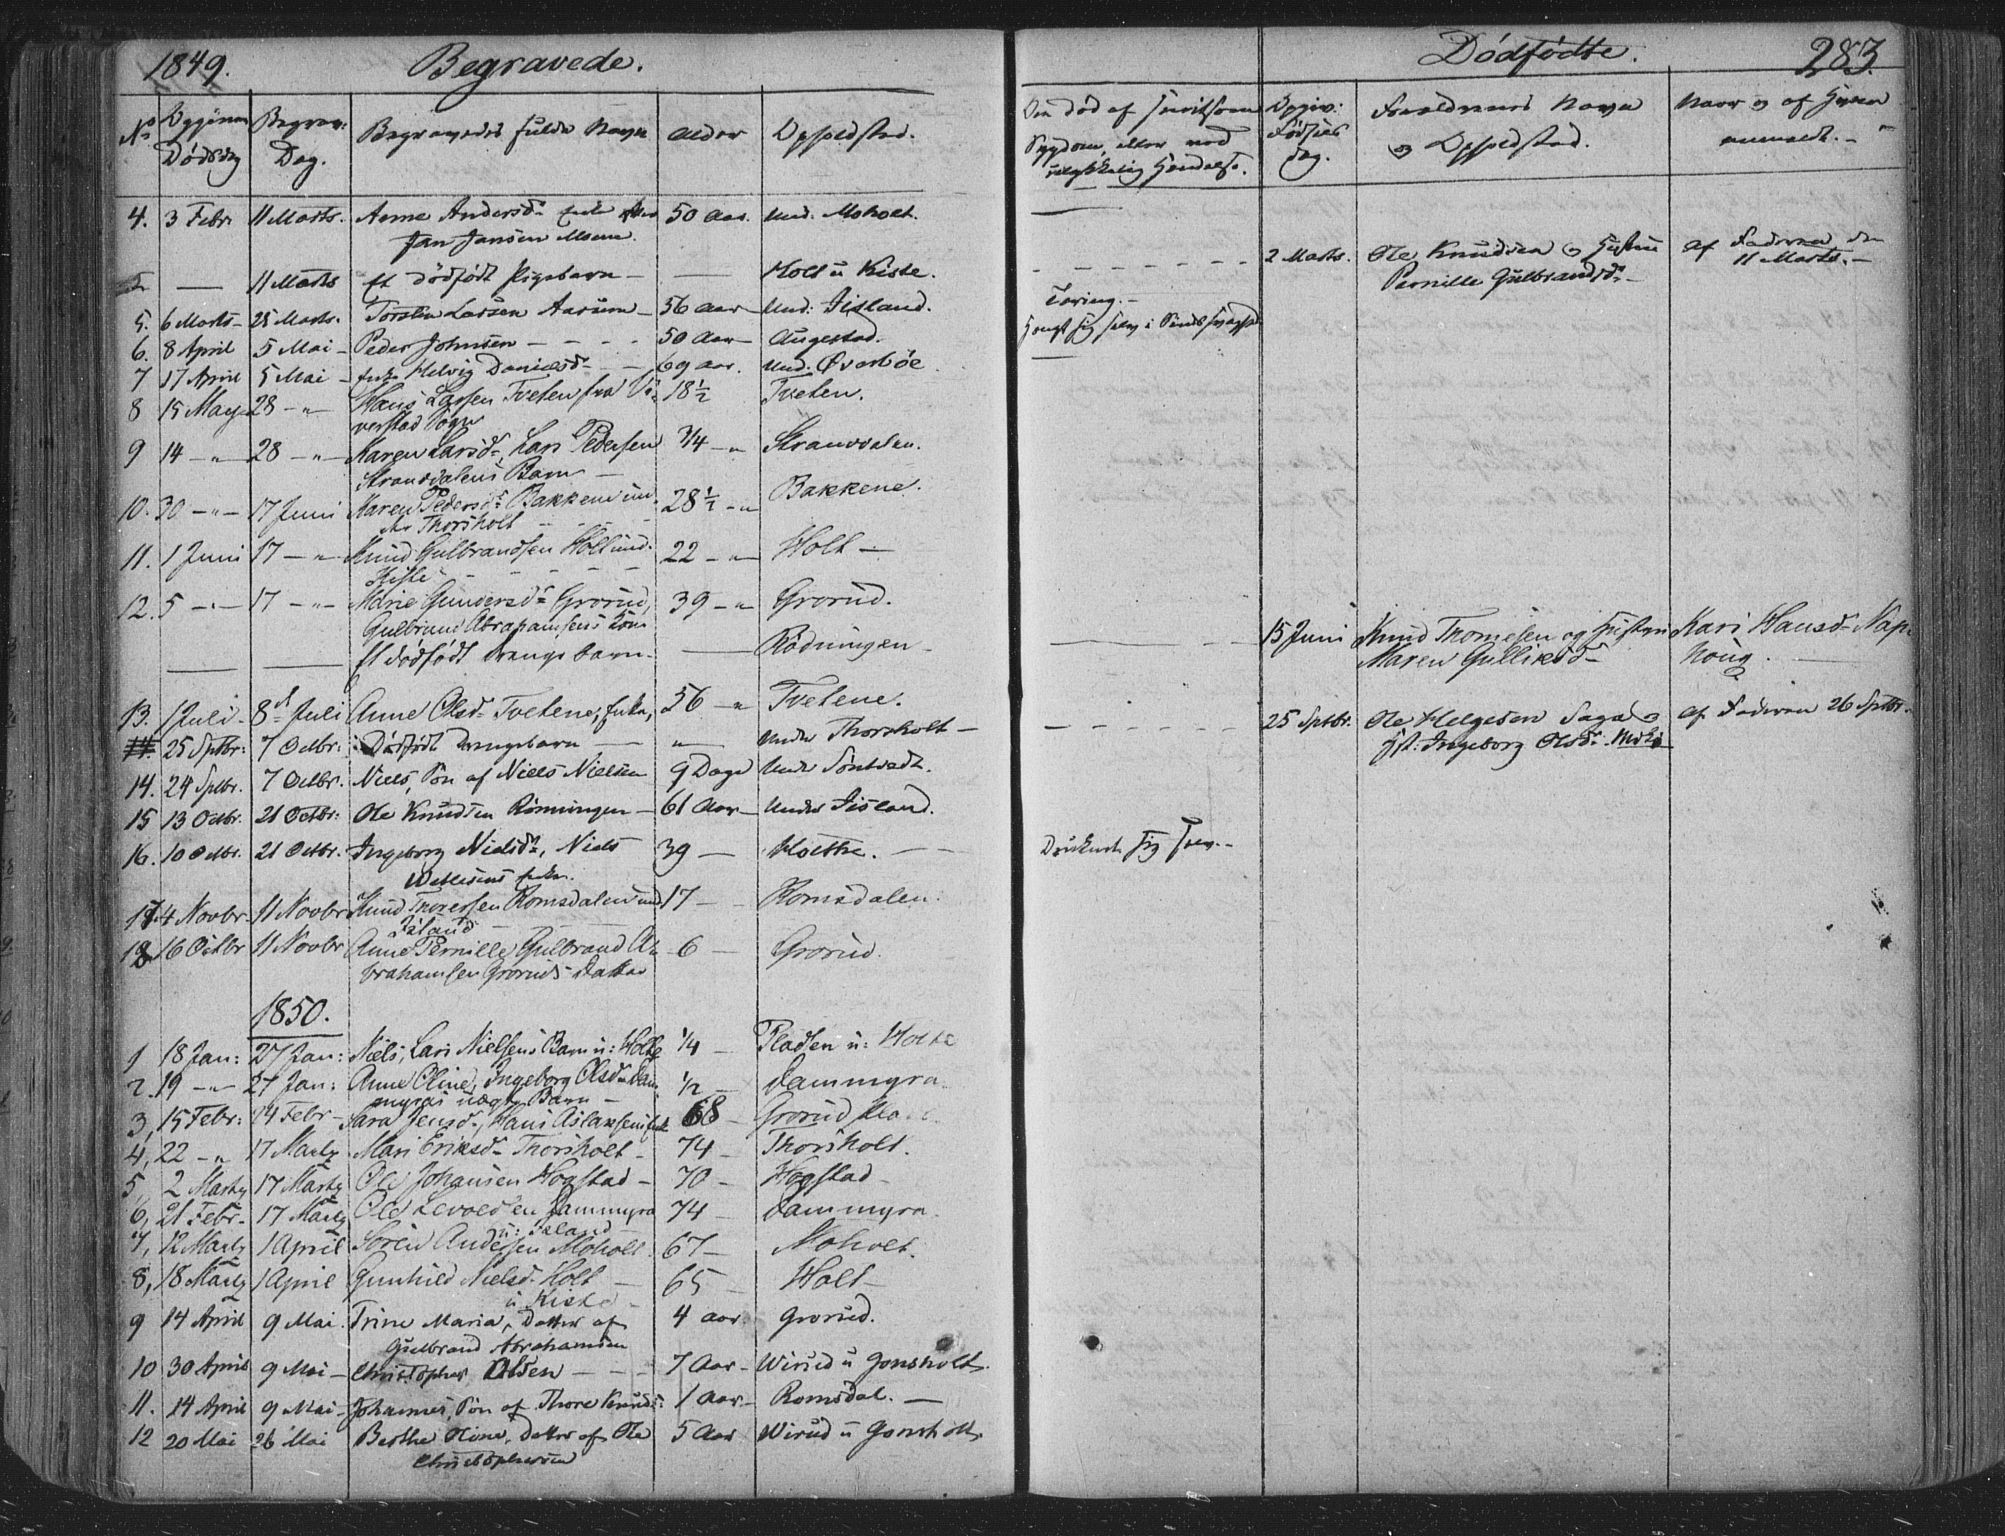 1849. Begravede.
Dødfødte. 283.
No
Dødsdag
Begrav: Dag.
Begravedes fulde Navn
Alder
Opholdsted.
Om død af
Sygdom, eller ved
ulykkelig Hendelse.
Fødsels dag.
Forældrenes Navn
og Opholdsted.
Naar og af hvem
anmeldt.
4. 3 Febr. 11 Marts. Anne Andersd. Enke 50 Aar. und. Moholt.
Jan Jansen Moen.
11 Marts Et dødfødt Pigebarn — — Holt u Kiste. 2 Marts. Ole Knudsen og Hustru af Faderen den
Pernille Gulbrandsd. 11 Marts.
5. 6 Marts 25 Marts. Torsten Larsen Aarum 56 Aar und. Iisland. Tæring.
6. 8 April 5 Mai Peder Johnsen 50 Aar Augestad.
7 17 April 5 Mai Enke Helvig Danielsd. 69 aar. und. Øverbøe
8 15 May 28 Hans Larsen Tveten fra 18½ Tveten.
Sogn
9 14 28 Karen Larsd, Lars Pedersen ¾ Stransdalen.
Stransdalens Barn
10. 30 17 Juni Maren Pedersd. Bakkene un 28½ Bakkene.
der Thorsholt
11. 1 Juni 17 Knud Gulbrandsen Holt und. 22 Holt
Kiste
12. 5 17 Marie Gundersd Grorud, 39 Grorud.
Gulbrand Abrahamsens Kone
Et dødfødt Drengebarn. Rødningen 15 Juni Knud Thomesen og Hustru Kari Hansd
Maren Gulliksd
13. 1 Juli 8d Juli Anne Olsd Tvetene, Enke, 56 Tvetene.
14. 25 Sptbr: 7 Octbr: Dødfødt Drengebarn under Thorsholt 25 Sptbr. Ole Helgesen og af Faderen 26 Sptbr.
Hst: Ingeborg Olsd.
14. 24 Sptbr. 7 Octbr. Niels, Søn af Niels Nielsen 9 Dage under
15 13 Octbr. 21 Octbr: Ole Knudsen Rønningen 61 Aar under Iisland.
16. 10 Octbr. 21 Octbr. Ingeborg Nielsd, Niels 39 Holthe. Druknet sig selv.
Enke.
17. 4 Novbr 11 Novbr Knud Thoresen Romsdalen und 17 Romsdalen.
Island
18 16 Octbr 11 Novbr Anne Pernille Gulbrand A 6 Grorud.
brahamsen Groruds Datter
1850.
1 18 Jan: 27 Jan: Niels, Lars Nielsens Barn u: Holte ¼ Pladsen u: Holte
2. 19 27 Jan: Anne Oline, Ingeborg Olsd Dam ½ Dammyra.
myras uægte Barn
3, 15 Febr: 14 Febr Sara Jensd, Hans Aslaksens Enke 68 Grorud
4, 22 17 Marts Mari Eriksd Thorsholt 74 Thorsholt.
5, 2 Marts 17 Marts Ole Johansen Hogstad 70 Hogstad
6, 21 Febr 17 Marts Ole Levoldsen Dammyra 74 Dammyra.
u: Island
7, 12 Marts 1 April Søren Andersen Moholt 67 Moholt.
8, 18 Marts 1 April Gunhild Nielsd Holt 65 Holt
u Kiste
9 14 April 9 Mai. Trine Maria, Datter af 4 aar. Grorud.
Gulbrand Abrahamsen
10 30 April 9 Mai Christopher Olsen 7 Aar Wirud u Gonsholt.
11. 14 April 9 Mai Johannes, Søn af Thore Knuds: 1 Aar Romsdal.
12 20 Mai 26 Mai Berthe Oline, Datter af Ole 5 Aar Wirud u Gonsholt
Christophersen